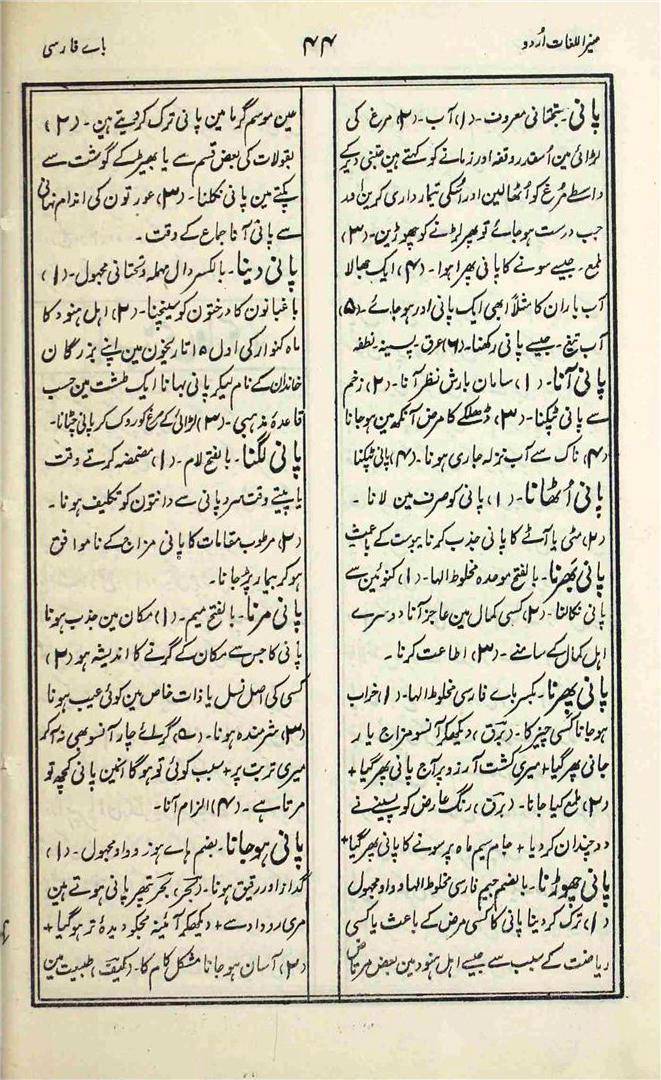 منیر اللغات اُردو
۴۴
باے فارسی
پانی۔ تحتانی معروف۔ (۱) آب۔ (۲) مرغ کی
لڑائی مین اُسقدر وقفہ اور زمانے کو کہتے ہین جتنی دیرکے
واسطے مُرغ کو اُٹھالین اور اُسکی تیمارداری کرین اور
جب درست ہوجائے تو پھر لڑنے کو چھوڑین۔ (۳)
ملمع۔ جیسے سونے کا پانی پھرا ہوا۔ (۴) ایک جھالا
آب باران کا مثلاً ابھی ایک پانی اور ہوجائے۔ (۵)
آب تیغ۔ جیسے پانی رکھنا۔ (۶) عرق۔ پسینہ۔ نطفہ
پانی آنا۔ (۱) سامان بارش نظر آنا۔ (۲) زخم
سے پانی ٹپکنا۔ (۳) ڈھلکے کا مرض آنکھ مین ہوجانا
(۴) ناک سے آب نزلہ جاری ہونا۔ (۴) پانی ٹپکنا
پانی اُٹھانا۔ (۱) پانی کو صرف مین لانا۔
(۲) مٹی یا آٹے کا پانی جذب کرنا یبوست کے باعث
پانی بھَرنا۔ بالفتح موحدہ مخلوط الہا۔ (۱) کنوئین سے
پانی نکالنا۔ (۲) کسی کمال مین عاجز آنا دوسرے
اہل کمال کے سامنے۔ (۳) اطاعت کرنا۔
پانی پھِرنا۔ بکسر باے فارسی مخلوط الہا۔ (۱) خراب
ہوجانا کسی چیز کا۔ (برق) دیکھکر آنسو مزاج یار
جانی پھر گیا + میری کشت آرزو پر آج پانی پھر گیا +
(۲) ملمع کیا جانا۔ (برق) رنگ عارض کو پسینے نے
دوچندان کردیا + جام سیم ماہ پر سونے کا پانی پھر گیا +
پانی چھوڑنا۔ بالضم جیم فارسی مخلوط الہا و واو مجہول
(۱) ترک کردینا پانی کا کسی مرض کے باعث یا کسی
ریاضت کے سبب سے جیسے اہل ہنود مین بعض مرتاض
عین موسم گرما مین پانی ترک کردیتے ہین۔ (۲)
بقولات کی بعض قسم سے یا بھیڑ کے گوشت سے
پکتے مین پانی نکلنا۔ (۳) عورتون کی اندام نہانی
سے پانی آنا جماع کے وقت۔
پانی دینا۔ بالکسر دال مہملہ و تحتانی مجہول۔ (۱)
باغبانون کا درختون کو سینچنا۔ (۲) اہل ہنود کا
ماہ کنوار کی اول ۱۵ تاریخون مین اپنے بزرگان
خاندان کے نام لیکر پانی بہانا ایک طشت مین حسب
قاعدۂ مذہبی۔ (۳) لڑائی کے مرغ کو روک کر پانی چٹانا۔
پانی لگنا۔ بالفتح لام۔ (۱) مضمضہ کرتے وقت
یا پیتے وقت سرد پانی سے دانتون کو تکلیف ہونا۔
(۲) مرطوب مقامات کا پانی مزاج کے ناموافق
ہوکر بیمار پڑجانا۔
پانی مرنا۔ بالفتح میم۔ (۱) مکان مین جذب ہونا
پانی کا جس سے مکان کے گرنے کا اندیشہ ہو (۲)
کسی کی اصل نسل یا ذات خاص مین کوئی عیب ہونا
(۳) شرمندہ ہونا۔ گرائے چار آنسو بھی نہ آکر
میری تربت پر + سبب کوئی تو ہوگا انین پانی کچھ تو
مرتا ہے۔ (۴) الزام آنا۔
پانی ہوجانا۔ بضم ہاے ہوز و واو مجہول۔ (۱)
گداز اور رقیق ہونا۔ (بحر) بحر پتھر پانی ہوتے ہین
مری روداد سے + دیکھکر آئینہ مجکو دیدۂ تر ہوگیا +
(۲) آسان ہوجانا مشکل کام کا۔ (کیف) طبیعت مین